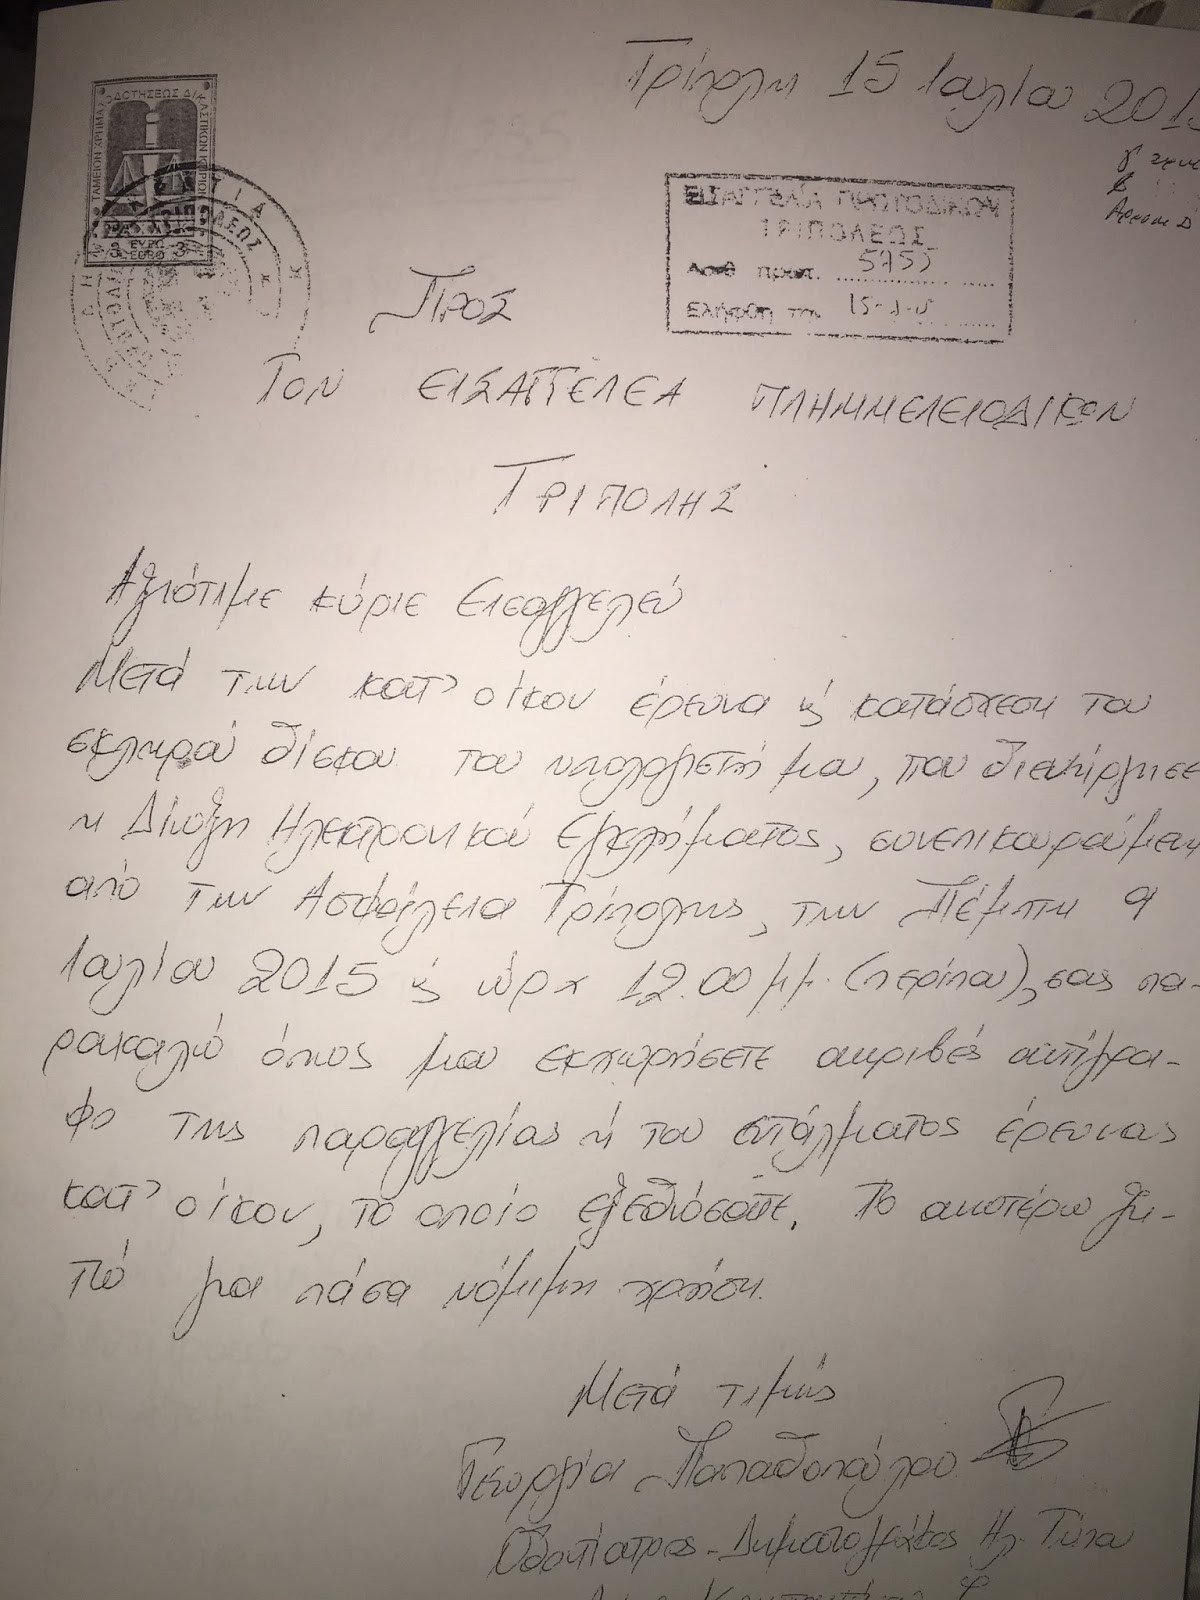 Τρίπολη 15 Ιουλίου 201
ΤΑΜΕΙΟΝ ΧΡΗΜΑΤΟΔΟΤΗΣΕΩΣ ΔΙΚΑΣΤΙΚΩΝ ΚΤΙΡΙΩΝ
3 ΕΥΡΩ EURO 3
ΕΙΣΑΓΓΕΛΙΑ ΠΡΩΤΟΔΙΚΩΝ
ΤΡΙΠΟΛΕΩΣ
Αριθ πρωτ.
Ελήφθη την
Προς
Τον Εισαγγελέα Πλημμελειοδικών
Τριπολης
Αξιότιμε κύριε Εισαγγελεύ
Μετά την κατ' οίκον έρευνα ϗ κατάσχεση του
σκληρού δίσκου του υπολογιστή μου, που διενήργησε
η Δίωξη Ηλεκτρονικού Εγκλήματος, συνεπικουρούμενη
από την Ασφάλεια Τρίπολης, την Πέμπτη 9
Ιουλίου 2015 ϗ ώρα 12.00 μμ. (περίπου), σας πα-
ρακαλώ όπως μου εκχωρήσετε ακριβές αντίγρα-
φο της παραγγελίας ή του εντάλματος έρευνας
κατ' οίκον, το οποίο εξεδώσατε. Το ανωτέρω ζη-
τώ για πάσα νόμιμη χρήση.
Μετά τιμής
Γεωργία Παπαδοπούλου
Οδοντίατρος - Δημοσιογράφος